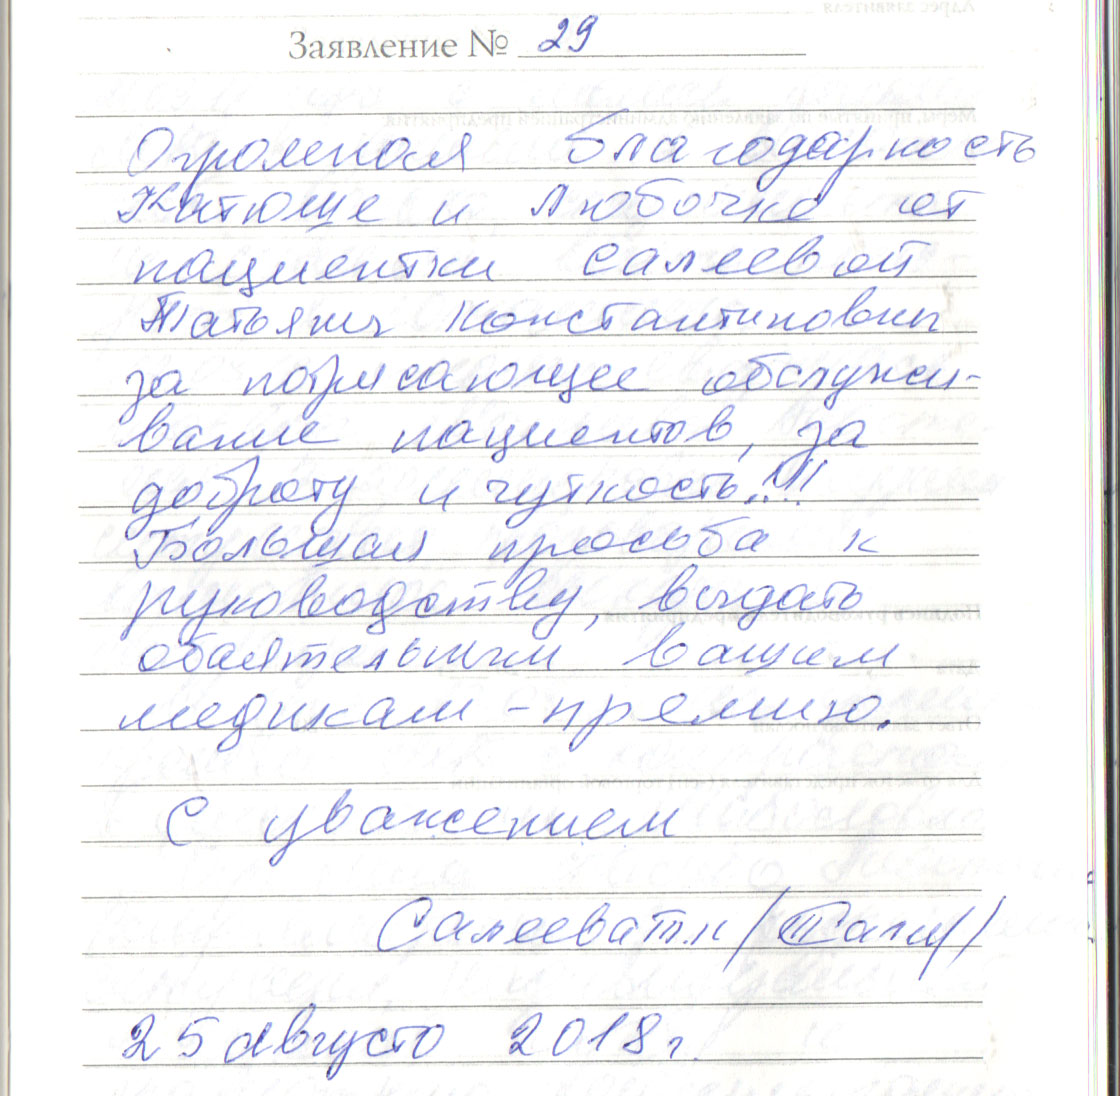 Заявление № 29
Огромная благодарность
Катюше и Любочке от
пациентки Салеевой
Татьяны Константиновны
за потрясающее обслужи-
вание пациентов, за
доброту и чуткость!!!
Большая просьба к
руководству, выдать
обаятельным вашим
медикам - премию.
С уважением
Салеева Т.К.
25 августа 2018 г.